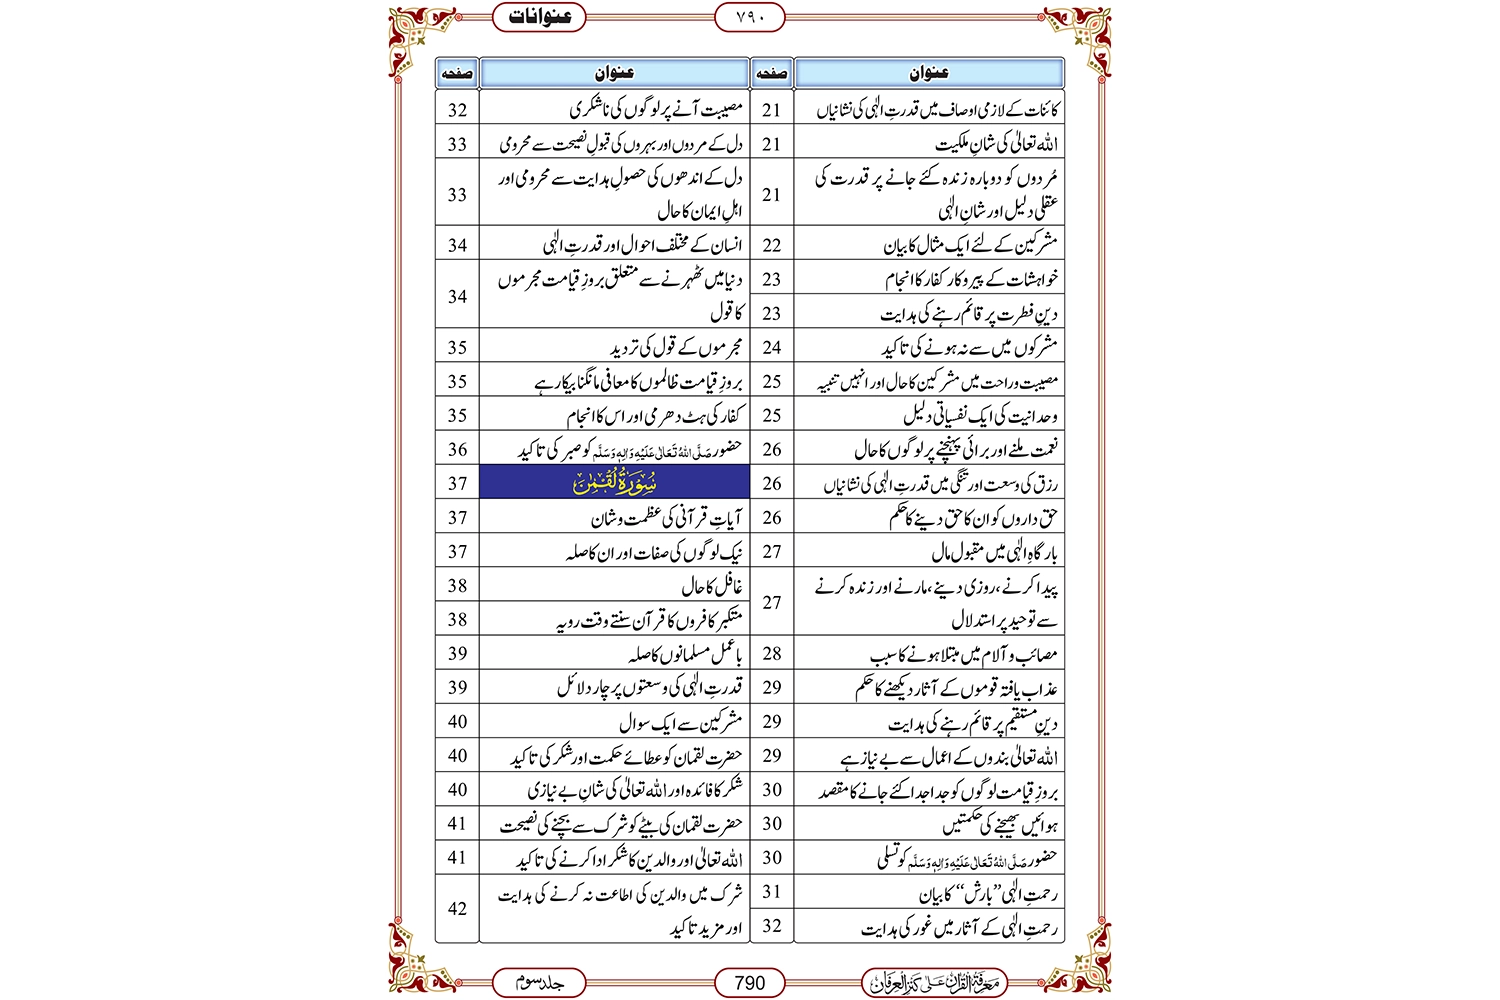 عنوانات
۷۹۰
عنوان صفحہ
کائنات کے لازمی اوصاف میں قدرتِ الٰہی کی نشانیاں 21
اللہ تعالیٰ کی شانِ ملکیت 21
مُردوں کو دوبارہ زندہ کئے جانے پر قدرت کی
عقلی دلیل اور شانِ الٰہی 21
مشرکین کے لئے ایک مثال کا بیان 22
خواہشات کے پیروکار کفار کا انجام 23
دینِ فطرت پر قائم رہنے کی ہدایت 23
مشرکوں میں سے نہ ہونے کی تاکید 24
مصیبت و راحت میں مشرکین کا حال اور انہیں تنبیہ 25
وحدانیت کی ایک نفسیاتی دلیل 25
نعمت ملنے اور برائی پہنچنے پر لوگوں کا حال 26
رزق کی وسعت اور تنگی میں قدرتِ الٰہی کی نشانیاں 26
حق داروں کو ان کا حق دینے کا حکم 26
بارگاہِ الٰہی میں مقبول مال 27
پیدا کرنے، روزی دینے، مارنے اور زندہ کرنے
سے توحید پر استدلال 27
مصائب و آلام میں مبتلا ہونے کا سبب 28
عذاب یافتہ قوموں کے آثار دیکھنے کا حکم 29
دینِ مستقیم پر قائم رہنے کی ہدایت 29
اللہ تعالیٰ بندوں کے اعمال سے بے نیاز ہے 29
بروزِ قیامت لوگوں کو جدا جدا کئے جانے کا مقصد 30
ہوائیں بھیجنے کی حکمتیں 30
حضور صَلَّی اللہُ تَعَالٰی عَلَیْہِ وَاٰلِہٖ وَسَلَّم کو تسلی 30
رحمتِ الٰہی ”بارش“ کا بیان 31
رحمتِ الٰہی کے آثار میں غور کی ہدایت 32
عنوان صفحہ
مصیبت آنے پر لوگوں کی ناشکری 32
دل کے مردوں اور بہروں کی قبولِ نصیحت سے محرومی 33
دل کے اندھوں کی حصولِ ہدایت سے محرومی اور
اہلِ ایمان کا حال 33
انسان کے مختلف احوال اور قدرتِ الٰہی 34
دنیا میں ٹھہرنے سے متعلق بروزِ قیامت مجرموں
کا قول 34
مجرموں کے قول کی تردید 35
بروزِ قیامت ظالموں کا معافی مانگنا بیکار ہے 35
کفار کی ہٹ دھرمی اور اس کا انجام 35
حضور صَلَّی اللہُ تَعَالٰی عَلَیْہِ وَاٰلِہٖ وَسَلَّم کو صبر کی تاکید 36
سُوْرَةُ لُقْمٰن 37
آیاتِ قرآنی کی عظمت و شان 37
نیک لوگوں کی صفات اور ان کا صلہ 37
غافل کا حال 38
متکبر کافروں کا قرآن سنتے وقت رویہ 38
باعمل مسلمانوں کا صلہ 39
قدرتِ الٰہی کی وسعتوں پر چار دلائل 39
مشرکین سے ایک سوال 40
حضرت لقمان کو عطائے حکمت اور شکر کی تاکید 40
شکر کا فائدہ اور اللہ تعالیٰ کی شانِ بے نیازی 40
حضرت لقمان کی بیٹے کو شرک سے بچنے کی نصیحت 41
اللہ تعالیٰ اور والدین کا شکر ادا کرنے کی تاکید 41
شرک میں والدین کی اطاعت نہ کرنے کی ہدایت
اور مزید تاکید 42
معرفۃ القرآن علی کنز العرفان
790
جلد سوم